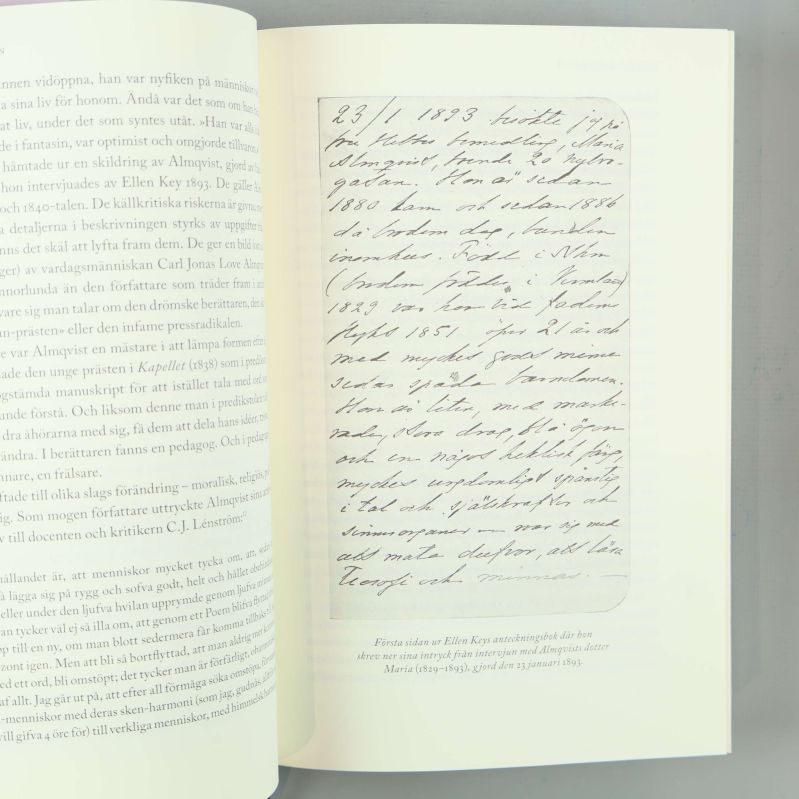 N
nnen vidöppna, han var nyfiken på människor
a sina liv för honom. Ändå var det som om han
at liv, under det som syntes utåt. »Han var
de i fantasin, var optimist och omgjorde tillvaron
hämtade ur en skildring av Almqvist, gjord av
hon intervjuades av Ellen Key 1893. De gäller
och 1840-talen. De källkritiska riskerna är givna, me
a detaljerna i beskrivningen styrks av uppgifter
nns det skäl att lyfta fram dem. De ger en bild (om
ger) av vardagsmänniskan Carl Jonas Love Almqvi
nnorlunda än den författare som träder fram i
vare sig man talar om den drömske berättaren, den
an-prästen» eller den infame pressradikalen.
e var Almqvist en mästare i att lämpa formen efter
ade den unge prästen i Kapellet (1838) som i prediko
ogstämda manuskript för att istället tala med ord
unde förstå. Och liksom denne man i predikstolen
dra åhörarna med sig, få dem att dela hans idéer,
ändra. I berättaren fanns en pedagog. Och i pedagog
nnare, en frälsare.
ftade till olika slags förändring – moralisk, religiös, p
ig. Som mogen författare uttryckte Almqvist sina
v till docenten och kritikern C.J. Lénström:
hållandet är, att menniskor mycket tycka om, att,
å lägga sig på rygg och sofva godt, helt och hållet
eller under den ljufva hvilan upprymde genom ljufva
an tycker väl ej så illa om, att genom ett Poem blifva
pp till en ny, om man blott sedermera får komma tillbaks till
zont igen. Men att bli så bortflyttad, att man aldrig mer
ed ett ord, bli omstöpt; det tycker man är förfärligt,
af allt. Jag går ut på, att efter all förmåga söka omstöpa,
-menniskor med deras sken-harmoni (som jag, gudnås,
vill gifva 4 öre för) till verkliga menniskor, med himmelsk
23/1 1893 besökte jag på
fru Hebbes bemedling, Maria
Almqvist, boende 20 Nybro-
gatan. Hon är sedan
1880 lam och sedan 1886
då brodern dog, bunden
inomhus. Född i Sthm
(brodern föddes i Vermland)
1829 var hon vid faderns
flykt 1851 öfver 21 år och
med mycket godt minne
sedan späda barndomen.
Hon är liten, med marke-
rade, stora drag, blå ögon
och en något hektisk färg,
mycket ungdomligt spänstig
i tal och själskrafter och
sinnesorganer — var sig med
att mata dufvor, att lära
Teosofi och minnas. —
Första sidan ur Ellen Keys anteckningsbok där hon
skrev ner sina intryck från intervjun med Almqvists dotter
Maria (1829–1893), gjord den 23 januari 1893.